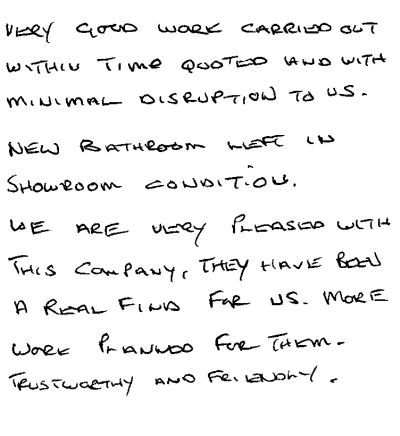 VERY GOOD WORK CARRIED OUT
WITHIN TIME QUOTED AND WITH
MINIMAL DISRUPTION TO US.
NEW BATHROOM LEFT IN
SHOWROOM CONDITION.
WE ARE VERY PLEASED WITH
THIS COMPANY, THEY HAVE BEEN
A REAL FIND FOR US. MORE
WORK PLANNED FOR THEM.
TRUSTWORTHY AND FRIENDLY.